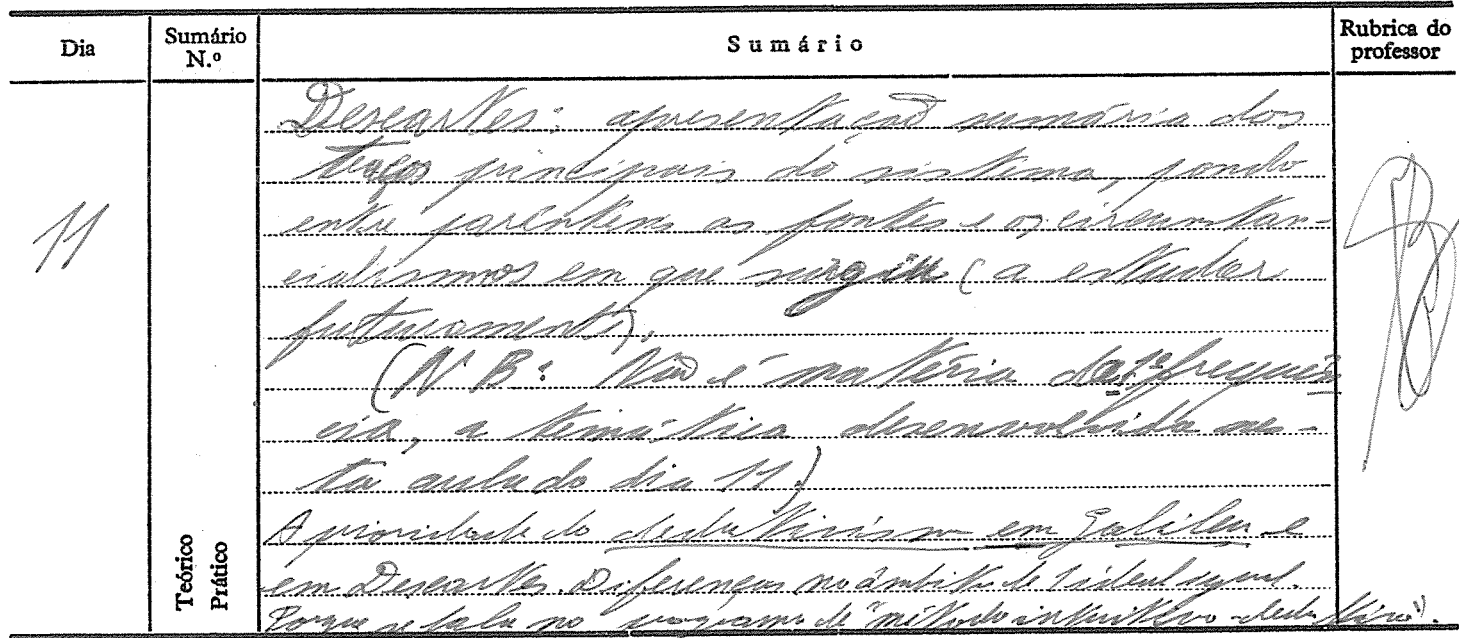 Dia
Sumário N.º
Sumário
Rubrica do professor
11
Descartes: apresentação sumária dos
traços principais do sistema, pondo
entre parêntesis as fontes e os circunstan-
cialismos em que surgiu (a estudar
futuramente).
(N B: Não é matéria da 1ª frequên
cia, a temática desenvolvida nes-
ta aula do dia 11)
Teórico
Prático
A prioridade do dedutivismo em Galileu e
em Descartes. Diferenças no âmbito de 1 ideal igual.
Porque se fala no programa de "método intuitivo-dedutivo".